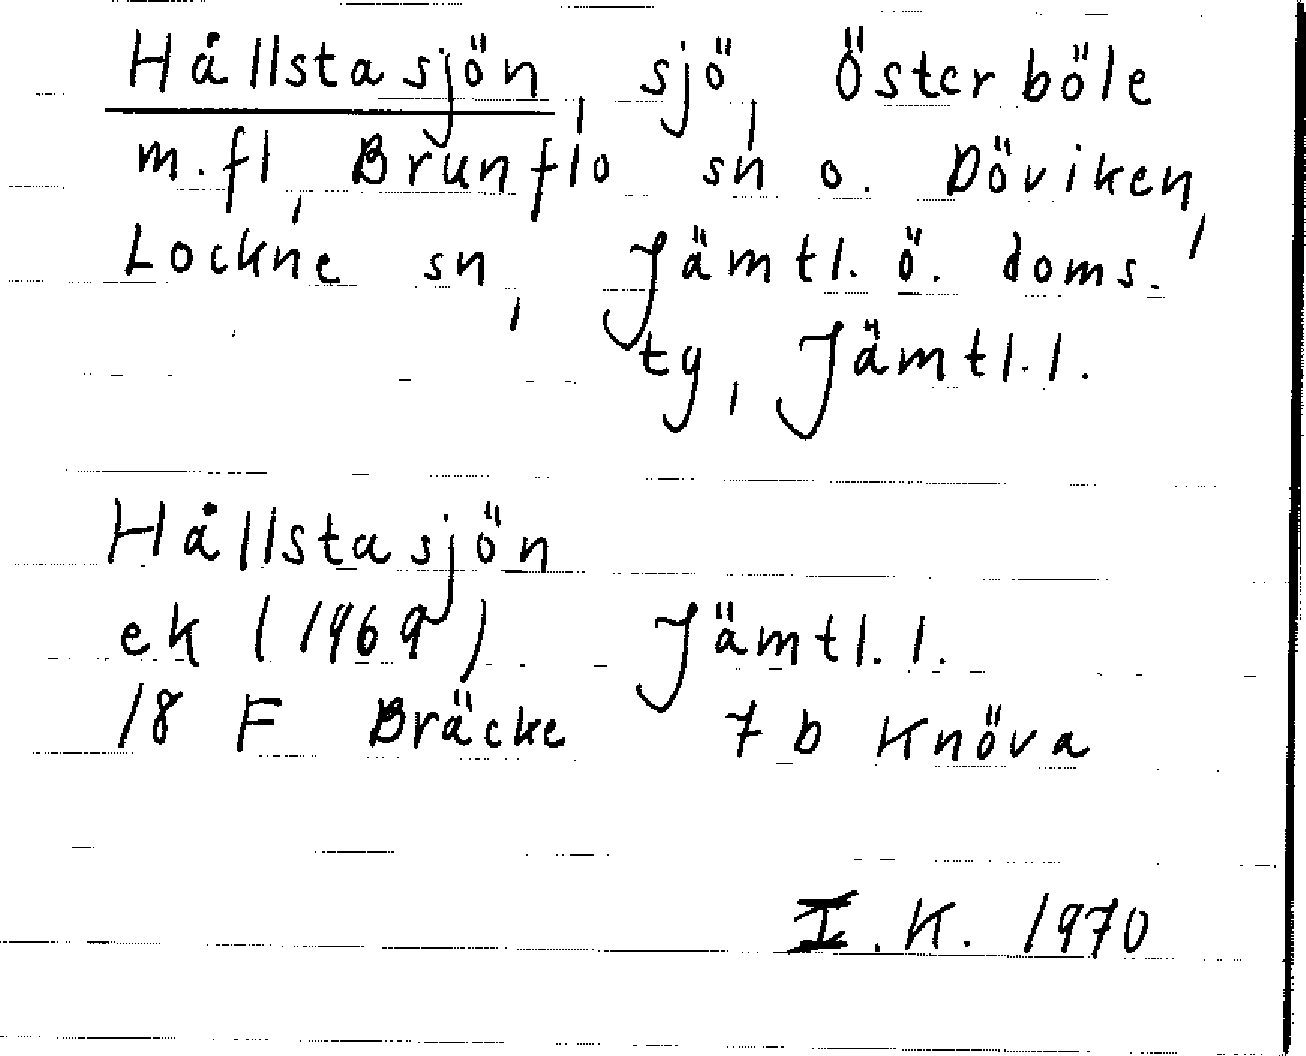 Hållstasjön, sjö, Österböle
m.fl, Brunflo sn o. Döviken,
Lockne sn, Jämtl. ö. doms.
ty, Jämtl.l.
Hållstasjön
ek (1969) Jämtl.l.
18 F Bräcke 7 b Knöva
I.K. 1970